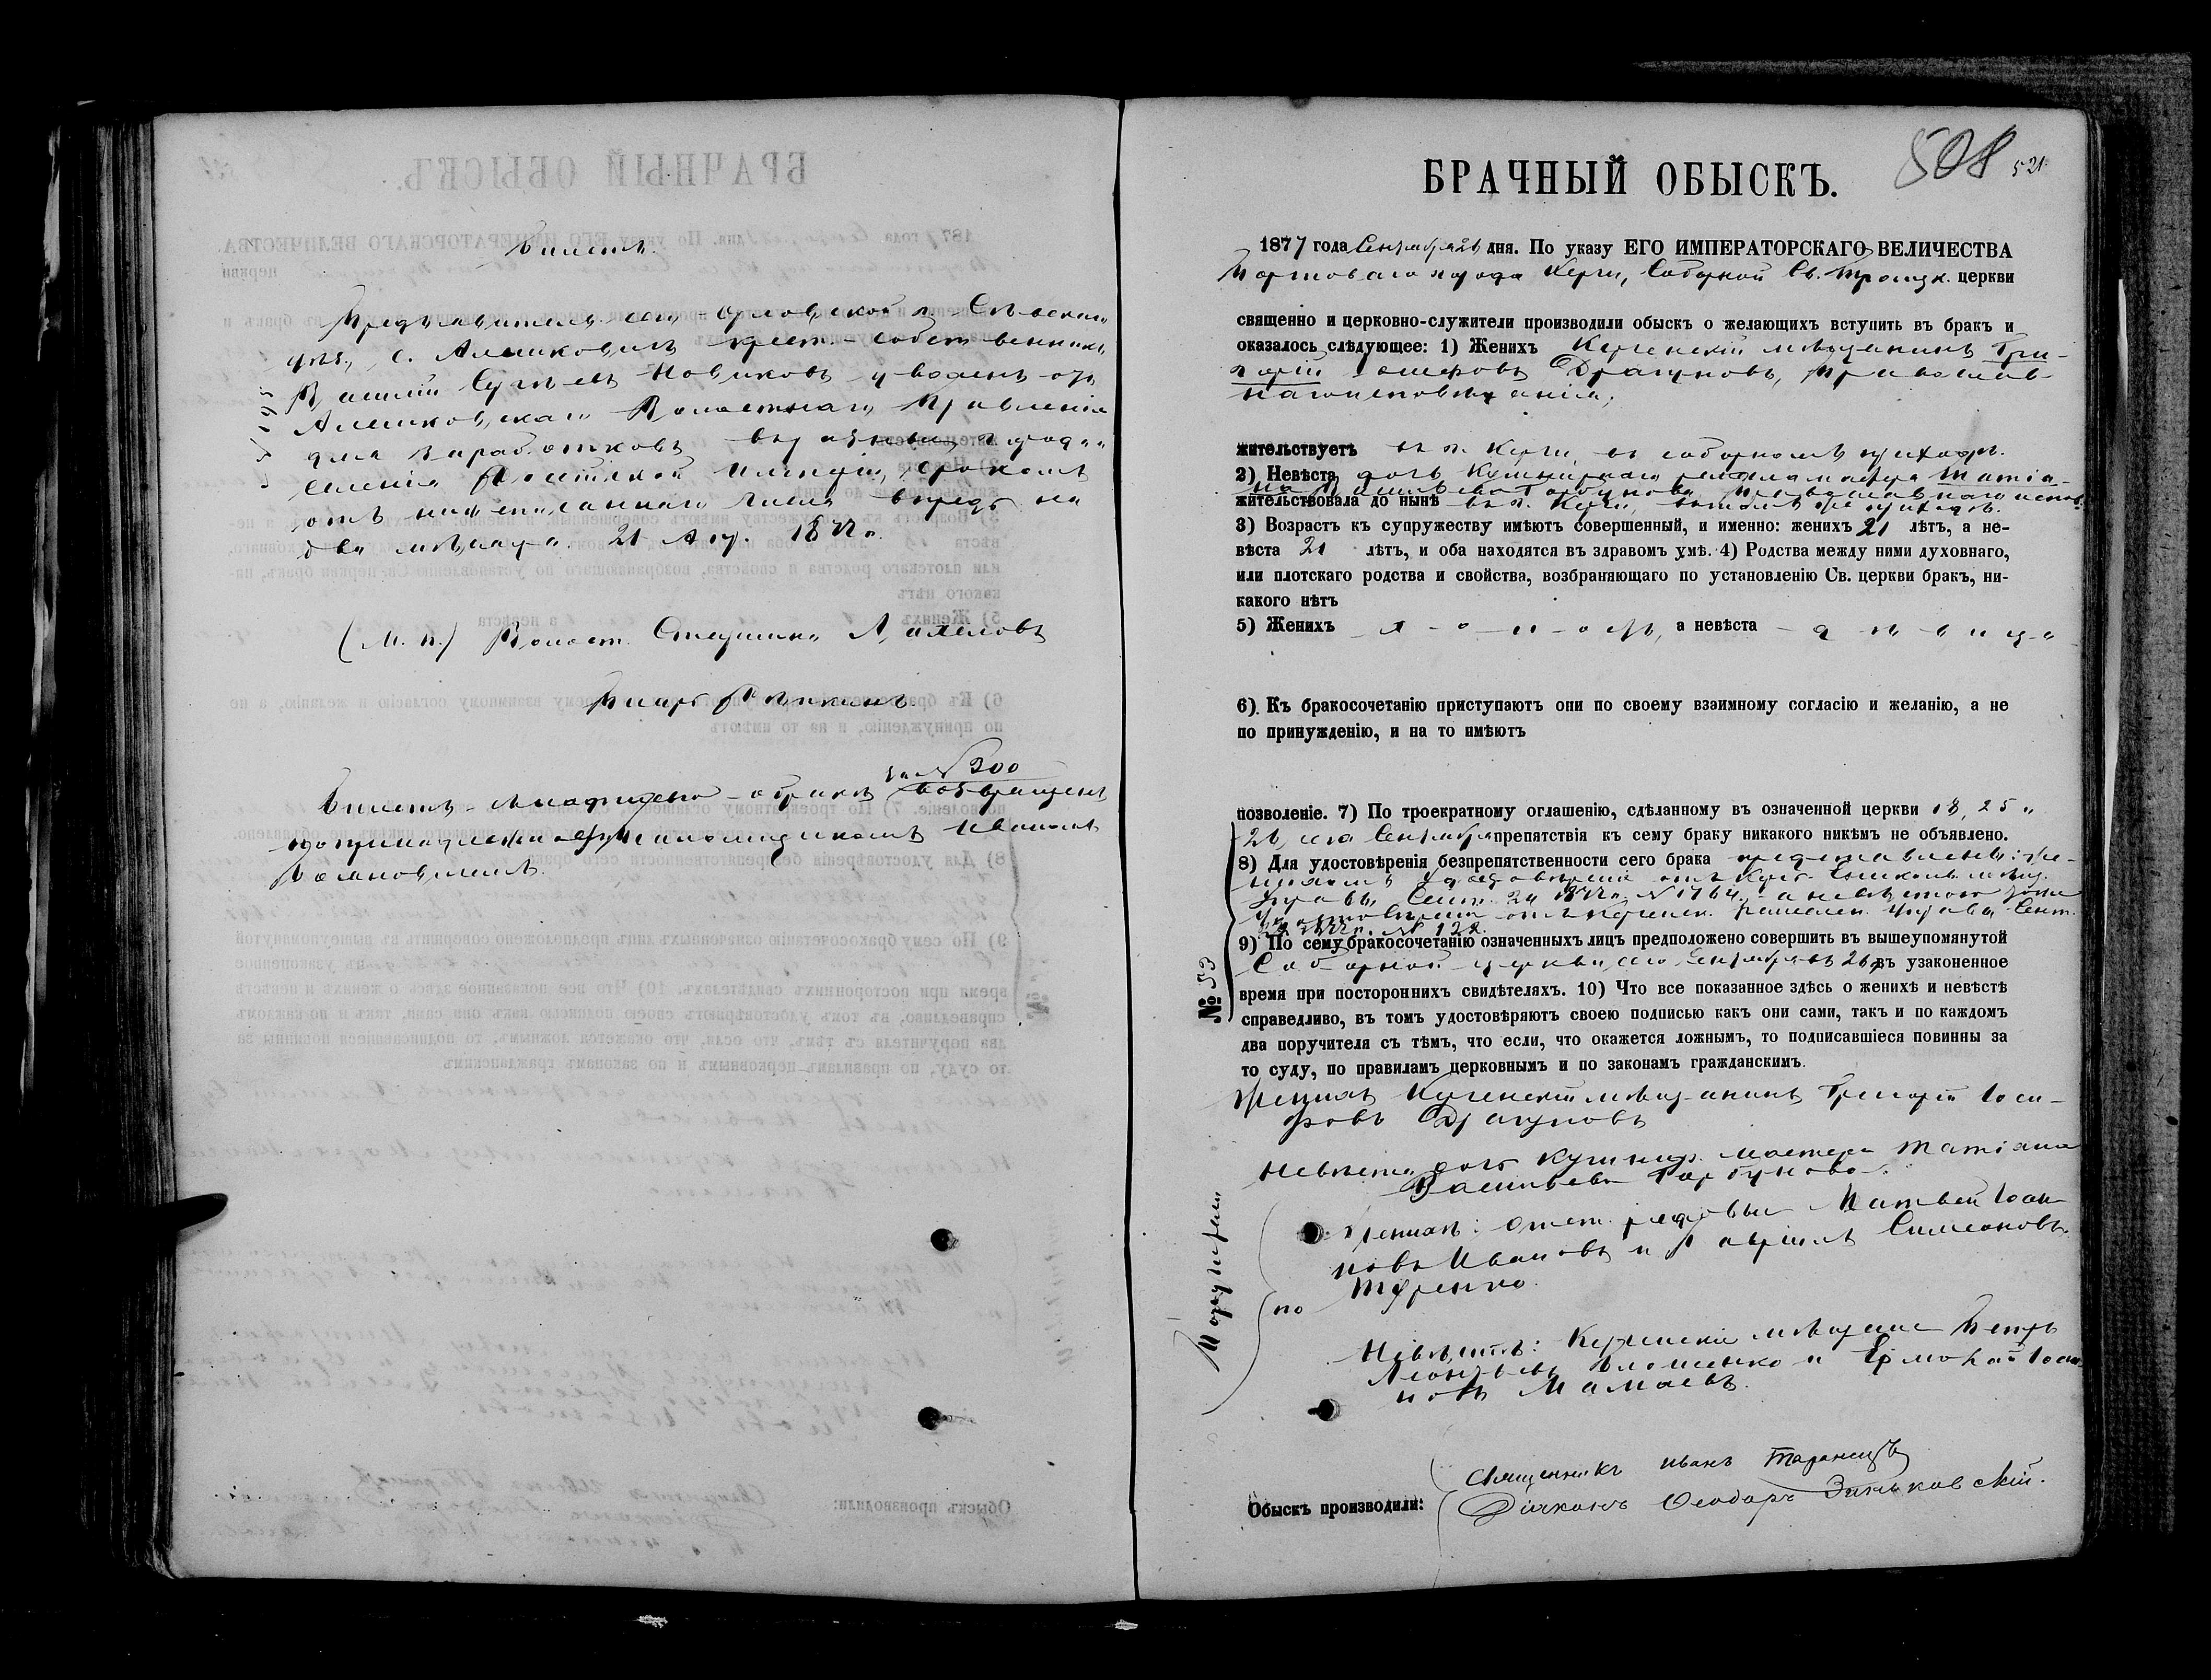 Билетъ.
Предъявитель сего Орловской г. Сѣвскаго
уѣз., с. Алешковичъ крест.-собственникъ
Василій Сергѣевъ Новиковъ уволенъ отъ
Алешковскаго Волостнаго Правленія
для заработковъ въ разные города и
селенія Россійской Имперіи, срокомъ
отъ нижеписаннаго числа впредь на
два мѣсяца. 21 Авг. 1877 г.
(М. П.) Волост. Старшина
Писарь
за № 300
Билетъ съ надписью о бракѣ возвращенъ
Иваномъ
БРАЧНЫЙ ОБЫСКЪ.
508 521
1877 года Сентября 26 дня. По указу ЕГО ИМПЕРАТОРСКАГО ВЕЛИЧЕСТВА
Портоваго города Керчи, Соборной Св. Троицк. церкви
священно и церковно-служители производили обыскъ о желающихъ вступить въ бракъ и
оказалось слѣдующее: 1) Женихъ Керченскій мѣщанинъ Гри-
горій Іосифовъ Драгуновъ, православ-
наго исповѣданія,
жительствуетъ въ г. Керчи, въ соборномъ приходѣ.
2) Невѣста дочь Татіа-
на Васильева Горбунова, православнаго испов.
жительствовала до нынѣ въ г. Керчи, въ томъ же приходѣ.
3) Возрастъ къ супружеству имѣютъ совершенный, и именно: женихъ 21 лѣтъ, а не-
вѣста 21 лѣтъ, и оба находятся въ здравомъ умѣ. 4) Родства между ними духовнаго,
или плотскаго родства и свойства, возбраняющаго по установленію Св. церкви бракъ, ни-
какого нѣтъ
5) Женихъ х-о-л-о-стъ, а невѣста д-ѣ-в-и-ц-а
6) Къ бракосочетанію приступаютъ они по своему взаимному согласію и желанію, а не
по принужденію, и на то имѣютъ
позволеніе. 7) По троекратному оглашенію, сдѣланному въ означенной церкви 18, 25 и
26, сего Сентября препятствія къ сему браку никакого никѣмъ не объявлено.
8) Для удостовѣренія безпрепятственности сего брака представлены: же-
нихомъ удостовѣреніе отъ Керч-Еникол. мѣщ.
управы, Сент. 24 1877 г. № 1764, а невѣстою тоже
удостовѣреніе отъ Керченск. Ремеслен. Управы Сент.
24 1877 г. № 122.
9) По сему бракосочетанію означенныхъ лицъ предположено совершить въ вышеупомянутой
Соборной церкви, сего Сентября въ 26 д. въ узаконенное
время при постороннихъ свидѣтеляхъ. 10) Что все показанное здѣсь о женихѣ и невѣстѣ
справедливо, въ томъ удостовѣряютъ своею подписью какъ они сами, такъ и по каждомъ
два поручителя съ тѣмъ, что если, что окажется ложнымъ, то подписавшіеся повинны за
то суду, по правиламъ церковнымъ и по законамъ гражданскимъ.
№ 53
Женихъ Керченскій мѣщанинъ Григорій Іоси-
фовъ Драгуновъ
Невѣста дочь мастера Татіана
Васильева Горбунова.
Поручители
по
Женихѣ: отст. рядовые Матвѣй Іоан-
новъ Ивановъ и Гавріилъ Симеоновъ
Невѣстѣ: Керченскіе мѣщане Петръ
Леонтьевъ и Ермолай Іоан-
новъ Мамаевъ.
Обыскъ производили:
Священникъ Иванъ Таранецъ
Діаконъ Ѳеодоръ Зиньковскій.